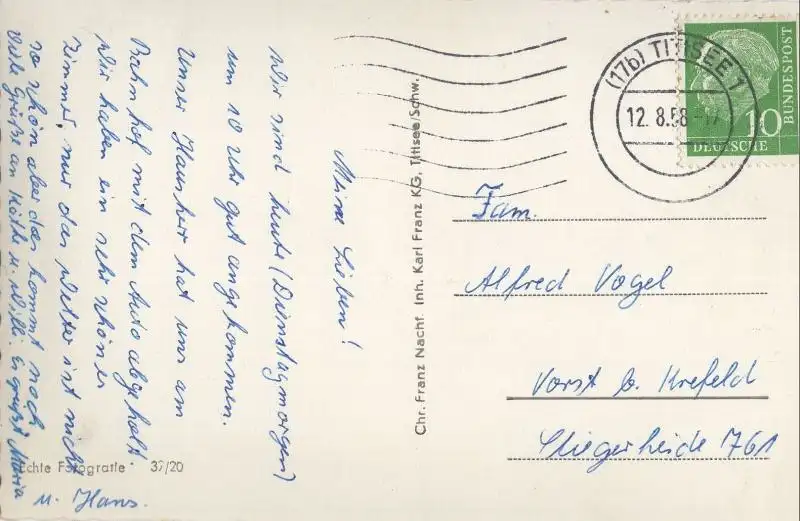 Meine Lieben!
Wir sind heute (Dienstagmorgen)
um 10 Uhr gut angekommen.
Unser Hausherr hat uns am
Bahnhof mit dem Auto abgeholt
Wir haben ein sehr schönes
Zimmer, nur das Wetter ist nicht
so schön aber das kommt noch
Viele Grüße an Käthe u. Willi. Es grüßt Maria
u. Hans.
Echte Fotografie 37/20
Chr. Franz Nachf. Inh. Karl Franz KG. Titisee/Schw.
(17b) TITISEE 1
12. 8.58-17
10
DEUTSCHE
BUNDESPOST
Fam.
Alfred Vogel
Vorst b. Krefeld
761